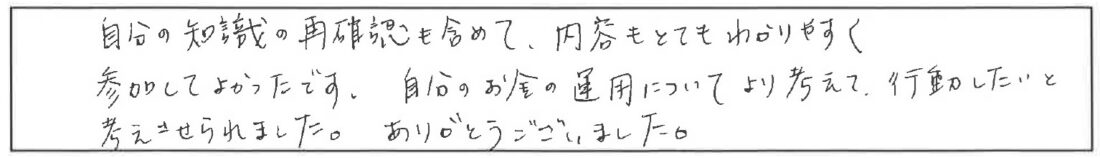 自分の知識の再確認も含めて、内容もとてもわかりやすく
参加してよかったです。自分のお金の運用についてより考えて、行動したいと
考えさせられました。ありがとうございました。